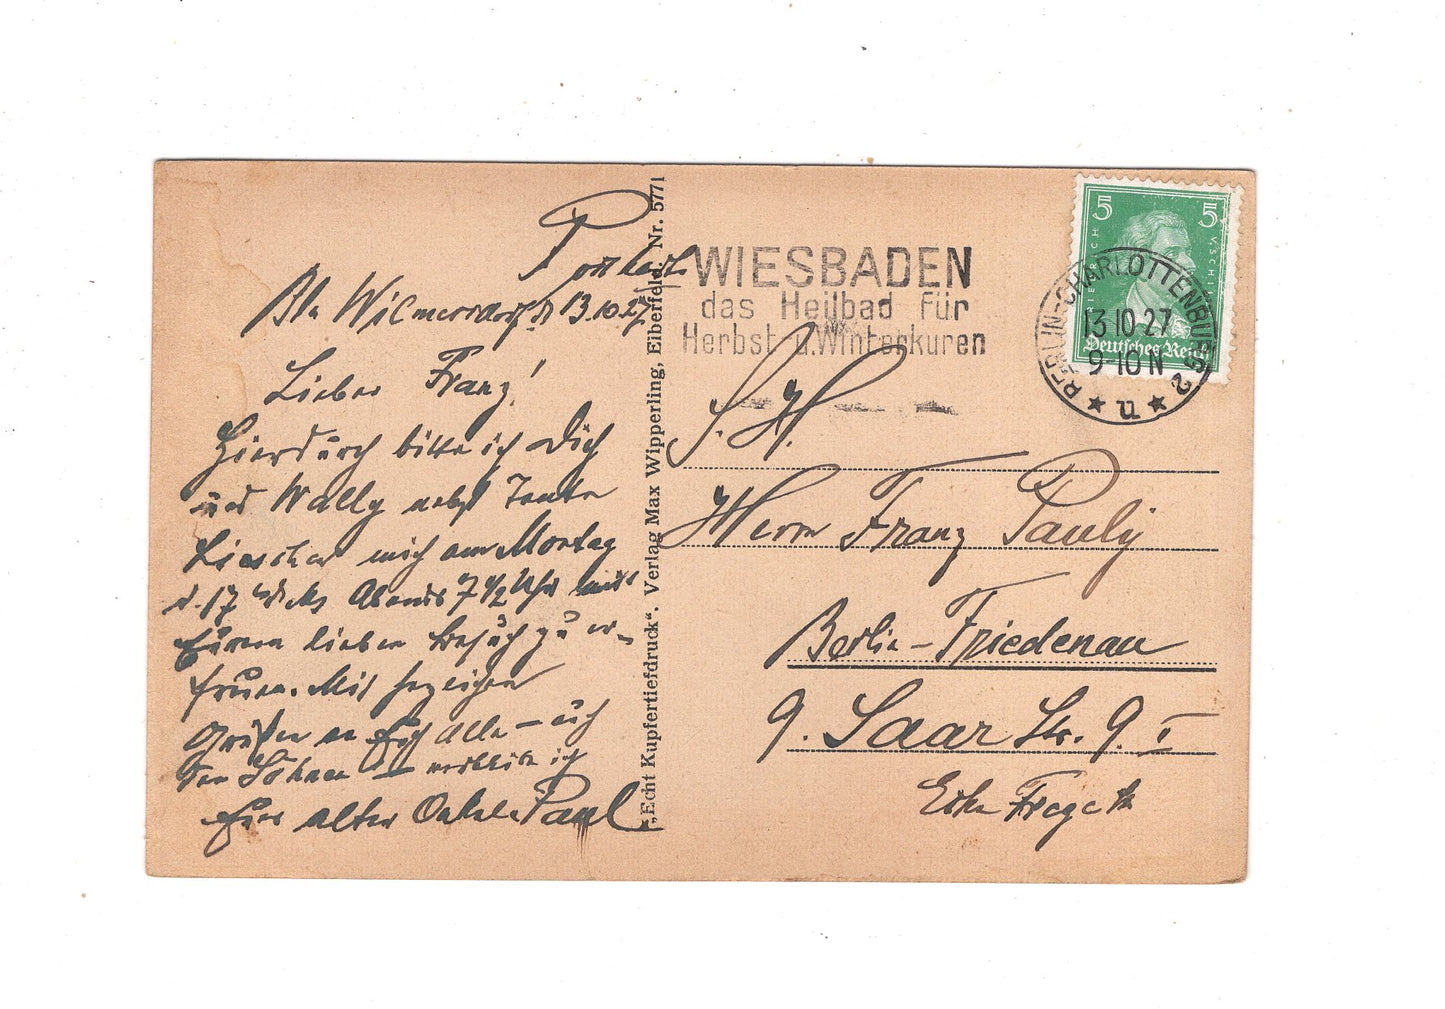 Postkarte
Bln Wilmersdorf d 13.10.27
Lieber Franz!
Hierdurch bitte ich Dich
und Wally nebst Tante
Lieschen mich am Montag
d. 17 Abends 7 1/2 Uhr mit
Eurem lieben Besuch zu er-
freuen. Mit herzigen
Grüßen an Euch Alle - auch
den Söhnen - verbleibe ich
Euer alter Onkel Paul
„Echt Kupfertiefdruck“. Verlag Max Wipperling, Elberfeld. Nr. 5771
WIESBADEN
das Heilbad für
Herbst u. Winterkuren
5 5
Deutsches Reich
BERLIN-CHARLOTTENBURG 2
13 10 27
9-10 N
* n *
S. H.
Herrn Franz Pauly
Berlin-Friedenau
9. Saar Str. 9. I
Ecke Fregestr